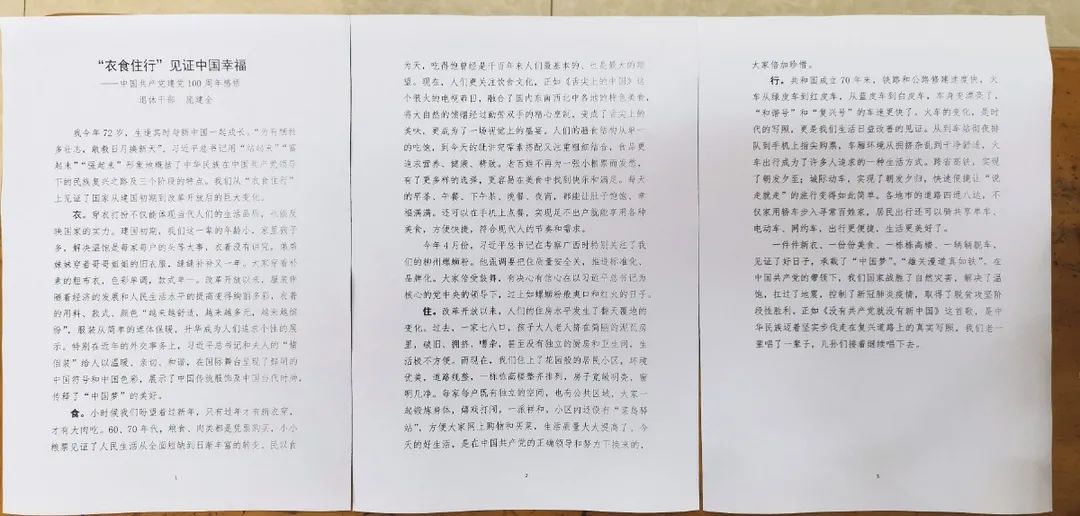 “衣食住行”见证中国幸福
——中国共产党建党100周年感悟
退休干部 施建金
我今年72岁，生逢其时与新中国一起成长。“为有牺牲
多壮志，敢教日月换新天”。习近平总书记用“站起来”“富
起来”“强起来”形象地概括了中华民族在中国共产党领导
下的民族复兴之路及三个阶段的特点。我们从“衣食住行”
上见证了国家从建国初期到改革开放后的巨大变化。
衣。穿衣打扮不仅能体现当代人们的生活品质，也能反
映国家的实力。建国初期，我们这一辈的年龄小，家里孩子
多，解决温饱是每家每户的头等大事，衣着没有讲究，弟弟
妹妹穿着哥哥姐姐的旧衣服，缝缝补补又一年。大家穿着朴
素的粗布衣，色彩单调，款式单一。改革开放以来，服装伴
随着经济的发展和人民生活水平的提高变得绚丽多彩，衣着
的用料、款式、颜色“越来越舒适，越来越多元，越来越缤
纷”，服装从简单的遮体保暖，升华成为人们追求个性的展
示。特别在近年的外交事务上，习近平总书记和夫人的“情
侣装”给人以温暖、亲切、和谐，在国际舞台呈现了鲜明的
中国符号和中国色彩，展示了中国传统服饰及中国当代时尚，
传释了“中国梦”的美好。
食。小时候我们盼望着过新年，只有过年才有新衣穿，
才有大肉吃。60、70年代，粮食、肉类都是凭票购买，小小
粮票见证了人民生活从全面短缺到日渐丰富的转变。民以食
1
为天，吃得饱曾经是千百年来人们最基本的、也是最大的期
望。现在，人们更关注饮食文化，正如《舌尖上的中国》这
个很火的电视节目，融合了国内东南西北中各地的特色美食，
将大自然的馈赠经过勤劳双手的精心烹制，变成了舌尖上的
美味，更成为了一场视觉上的盛宴，人们的膳食结构从单一
的吃饱，到今天的肚非完荤素搭配又注重粗细结合，食品更
追求营养、健康、精致。老百姓不再为一张小粮票而发愁，
有了更多样的选择，更容易在美食中找到快乐和满足。每天
的早茶、午餐、下午茶、晚餐、夜宵，都能让肚子饱饱、幸
福满满，还可以在手机上点餐，实现足不出户就能享用各种
美食，方便快捷，符合现代人的节奏和需求。
今年4月份，习近平总书记在考察广西时特别关注了我
们的柳州螺蛳粉。他强调要把住质量安全关，推进标准化、
品牌化。大家倍受鼓舞，有决心有信心在以习近平总书记为
核心的党中央的领导下，过上如螺蛳粉般爽口和红火的日子。
住。改革开放以来，人们的住房水平发生了翻天覆地的
变化。过去，一家七八口，孩子大人老人挤在简陋的泥瓦房
里，破旧、拥挤、嘈杂，甚至没有独立的厨房和卫生间，生
活极不方便。而现在，我们住上了花园般的居民小区，环境
优美，道路规整，一栋栋高楼整齐排列，房子宽敞明亮，窗
明几净。每家每户既有独立的空间，也有公共区域，大家一
起锻炼身体，嬉戏打闹，一派祥和，小区内还设有“菜鸟驿
站”，方便大家网上购物和买菜，生活质量大大提高了。今
天的好生活，是在中国共产党的正确领导和努力下换来的，
2
大家倍加珍惜。
行。共和国成立70年来，铁路和公路修建速度快，火
车从绿皮车到红皮车，从蓝皮车到白皮车，车身变漂亮了，
“和谐号”和“复兴号”的车速更快了。火车的变化，是时
代的写照，更是我们生活日益改善的见证。从到车站彻夜排
队到手机上指尖购票，车厢环境从拥挤杂乱到干净舒适，火
车出行成为了许多人追求的一种生活方式。跨省高铁，实现
了朝发夕至；城际动车，实现了朝发夕归，快速便捷让“说
走就走”的旅行变得如此简单。各地市的道路四通八达，不
仅家用轿车步入寻常百姓家，居民出行还可以骑共享单车、
电动车、网约车，出行更便捷，生活更美好了。
一件件新衣、一份份美食、一栋栋高楼、一辆辆靓车，
见证了好日子，承载了“中国梦”。“雄关漫道真如铁”。在
中国共产党的带领下，我们国家战胜了自然灾害，解决了温
饱，扛过了地震，控制了新冠肺炎疫情，取得了脱贫攻坚阶
段性胜利，正如《没有共产党就没有新中国》这首歌，是中
华民族迈着坚实步伐走在复兴道路上的真实写照，我们老一
辈唱了一辈子，儿孙们接着继续唱下去。
3